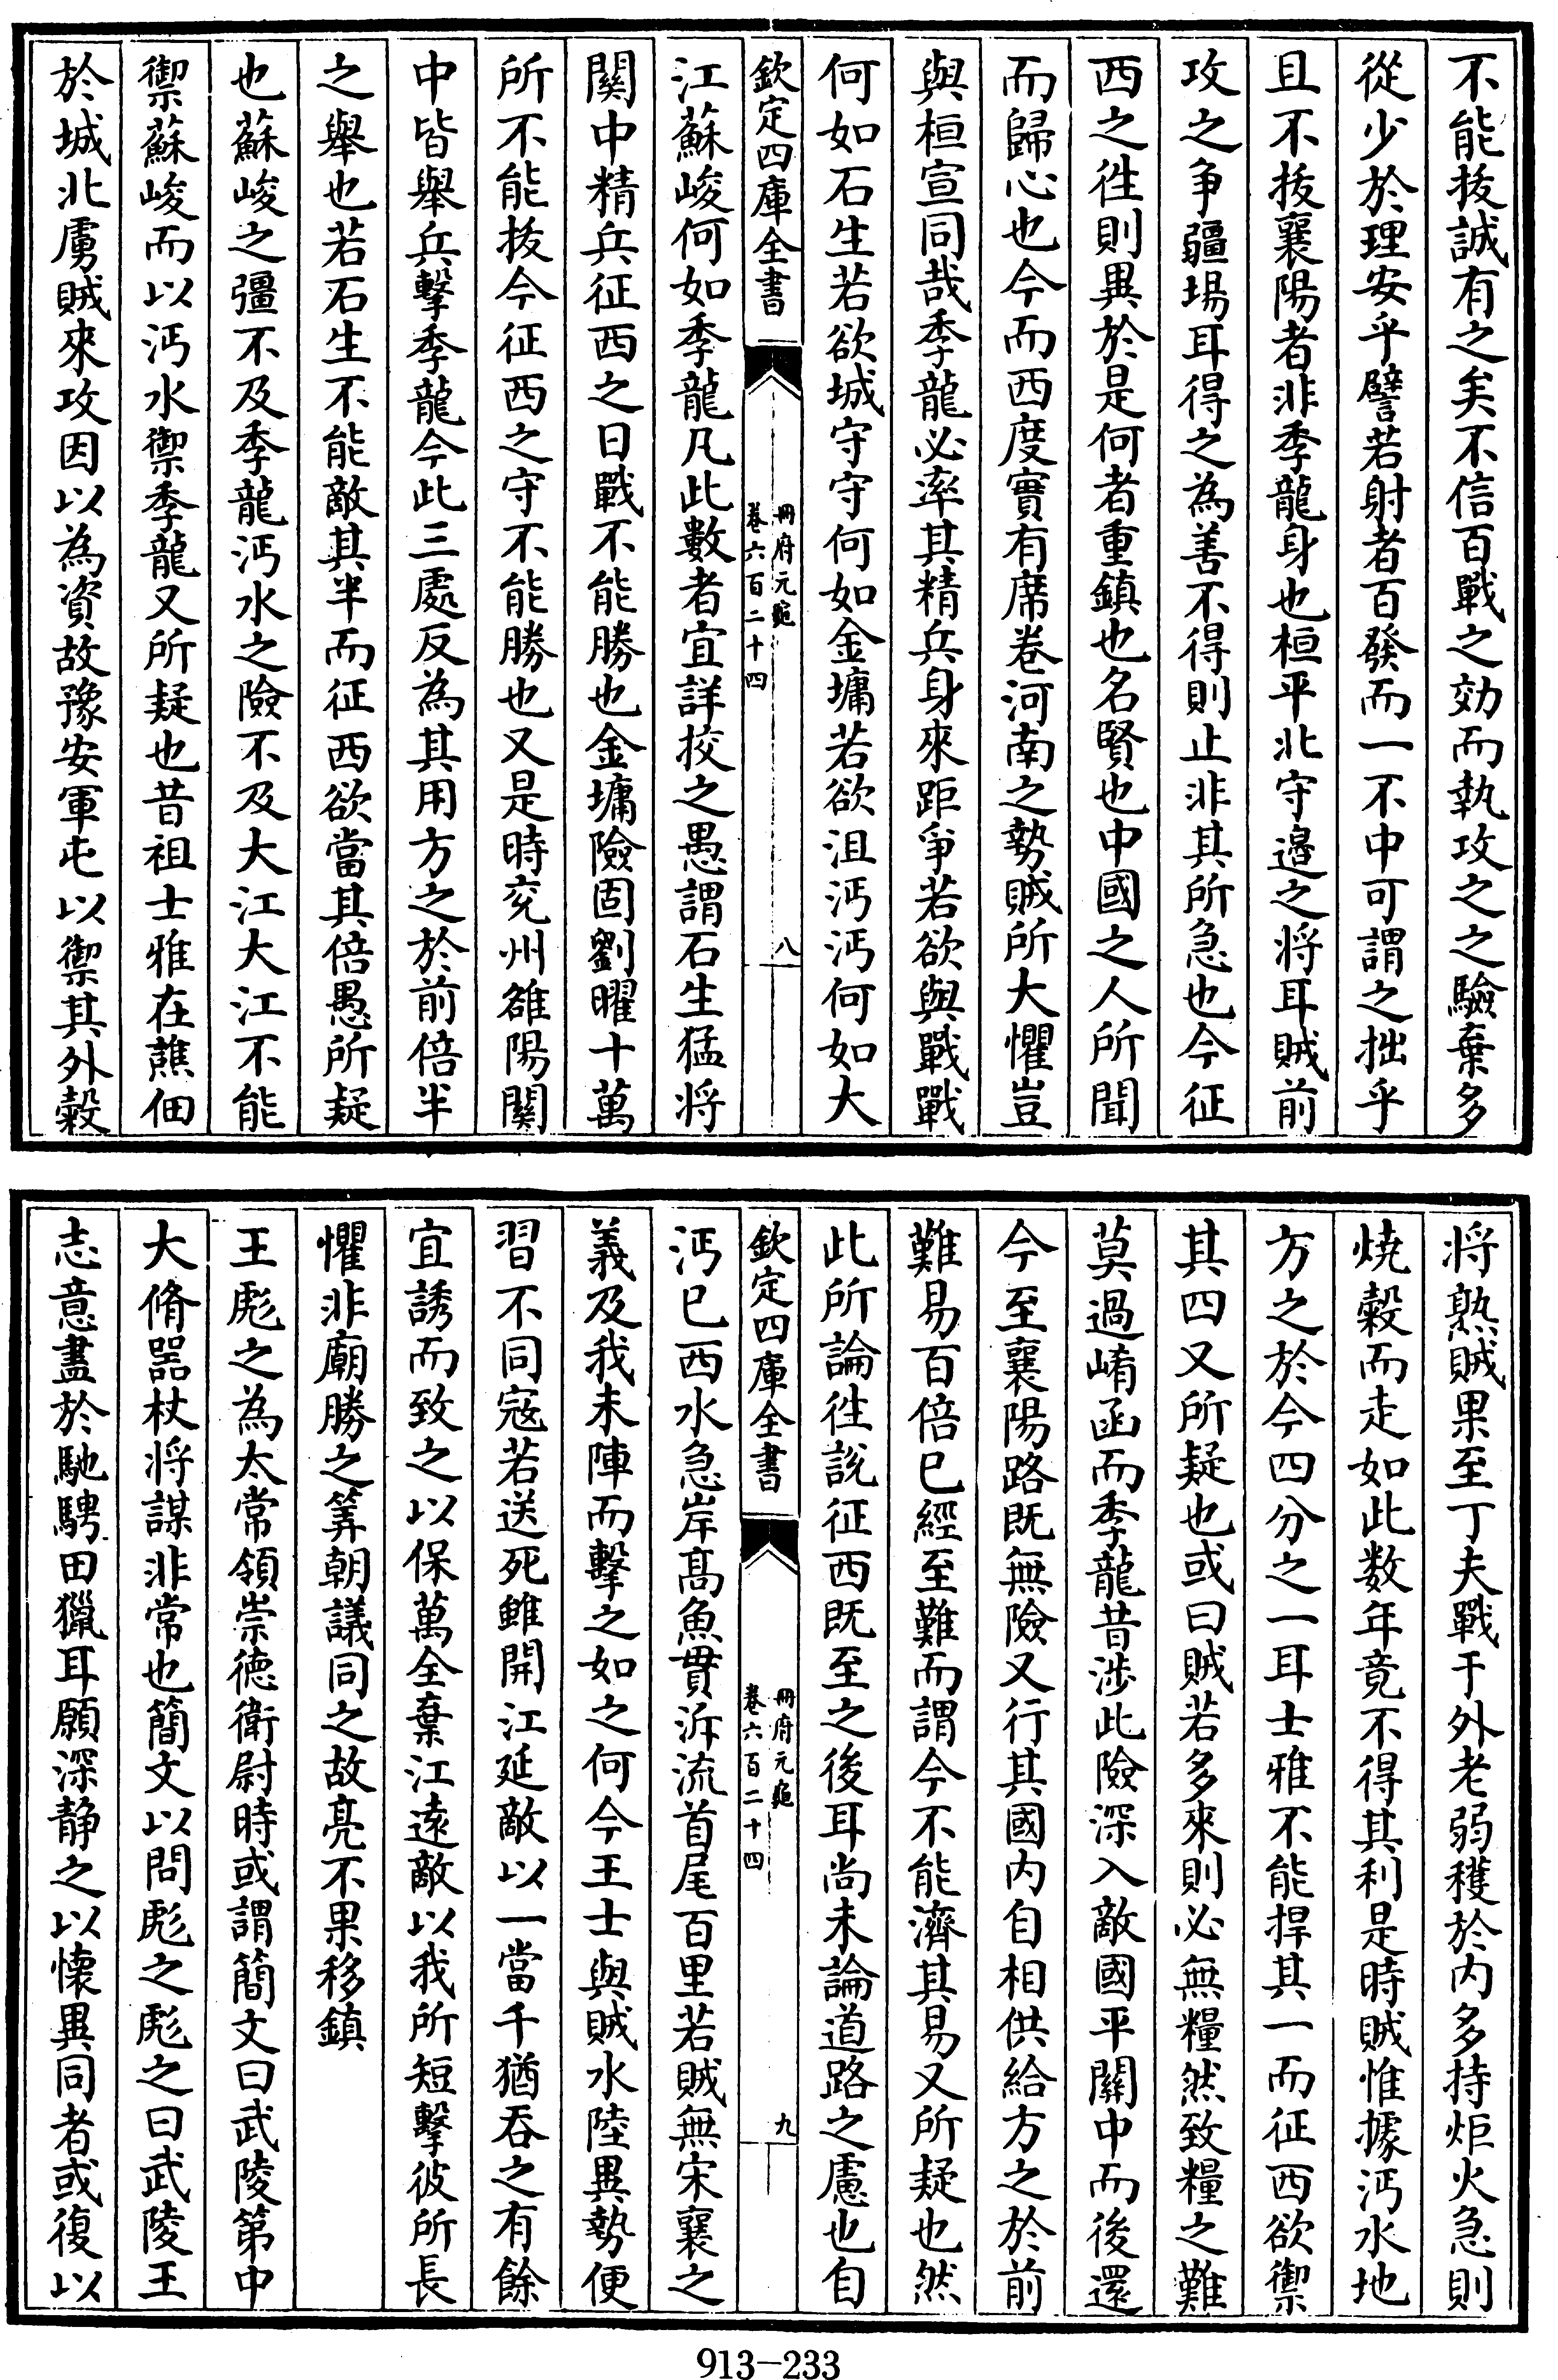 不能拔誠有之矣不信百戰之効而執攻之之驗棄多
從少於理安乎譬若射者百發而一不中可謂之拙乎
且不拔襄陽者非季龍身也桓平北守邉之将耳賊前
攻之争疆埸耳得之為善不得則止非其所急也今征
西之徃則異於是何者重鎮也名賢也中國之人所聞
而歸心也今而西度實有席卷河南之勢賊所大懼豈
與桓宣同哉季龍必率其精兵身來距爭若欲與戰戰
何如石生若欲城守守何如金墉若欲沮沔沔何如大
欽定四庫全書
冊府元龜
卷六百二十四
八
江蘇峻何如季龍凡此數者宜詳挍之愚謂石生猛将
關中精兵征西之日戰不能勝也金墉險固劉曜十萬
所不能拔今征西之守不能勝也又是時兖州雒陽關
中皆舉兵擊季龍今此三處反為其用方之於前倍半
之舉也若石生不能敵其半而征西欲當其倍愚所疑
也蘇峻之彊不及季龍沔水之險不及大江大江不能
禦蘇峻而以沔水禦季龍又所疑也昔祖士雅在蕉佃
於城北虜賊來攻因以為資故豫安軍屯以禦其外穀
将熟賊果至丁夫戰于外老弱穫於内多持炬火急則
燒穀而走如此数年竟不得其利是時賊惟據沔水地
方之於今四分之一耳士雅不能捍其一而征西欲禦
其四又所疑也或曰賊若多來則必無糧然致糧之難
莫過崤函而季龍昔渉此險深入敵國平關中而後還
今至襄陽路既無險又行其國内自相供給方之於前
難易百倍已經至難而謂今不能濟其易又所疑也然
此所論徃説征西既至之後耳尚未論道路之慮也自
欽定四庫全書
冊府元龜
卷六百二十四
九
沔已西水急岸髙魚貫泝流首尾百里若賊無宋襄之
義及我未陣而擊之如之何今王士與賊水陸異勢便
習不同冦若送死雖開江延敵以一當千猶吞之有餘
宜誘而致之以保萬全棄江逺敵以我所短擊彼所長
懼非廟勝之筭朝議同之故亮不果移鎮
王彪之為太常領崇徳衛尉時或謂簡文曰武陵第中
大脩器杖将謀非常也簡文以問彪之彪之曰武陵王
志意盡於馳騁田獵耳願深静之以懐異同者或復以
913—233